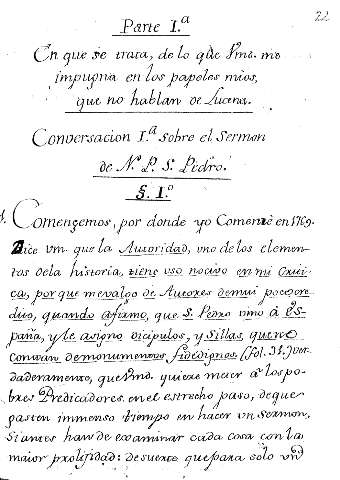 22
Parte I.ª
En que se trata, de lo que Vmd. me
impugna en los papeles mios,
que no hablan de Lucena.
Conversacion I.ª sobre el Sermon
de N. P. S. Pedro.
§. I.º
1. Començemos, por donde yo Comenzè en 1769.
Dice vm que la Autoridad, uno de los elemen-
tos dela historia, tiene uso nocivo en mi Criti-
ca, por que me valgo de Autores de mui poco cre-
dito, quando afirmo, que S. Pedro vino à Es-
paña, y le asigno dicipulos, y Sillas, que no
Constan de monumentos fidedignos. (fol. 31.) ver-
daderamente, que Vmd. quiere meter a los po-
bres Predicadores. en el estrecho paso, de que
gasten immenso tiempo en hacer un Sermon,
Si antes han de examinar cada cosa con la
maior prolijidad: de suerte que para solo un